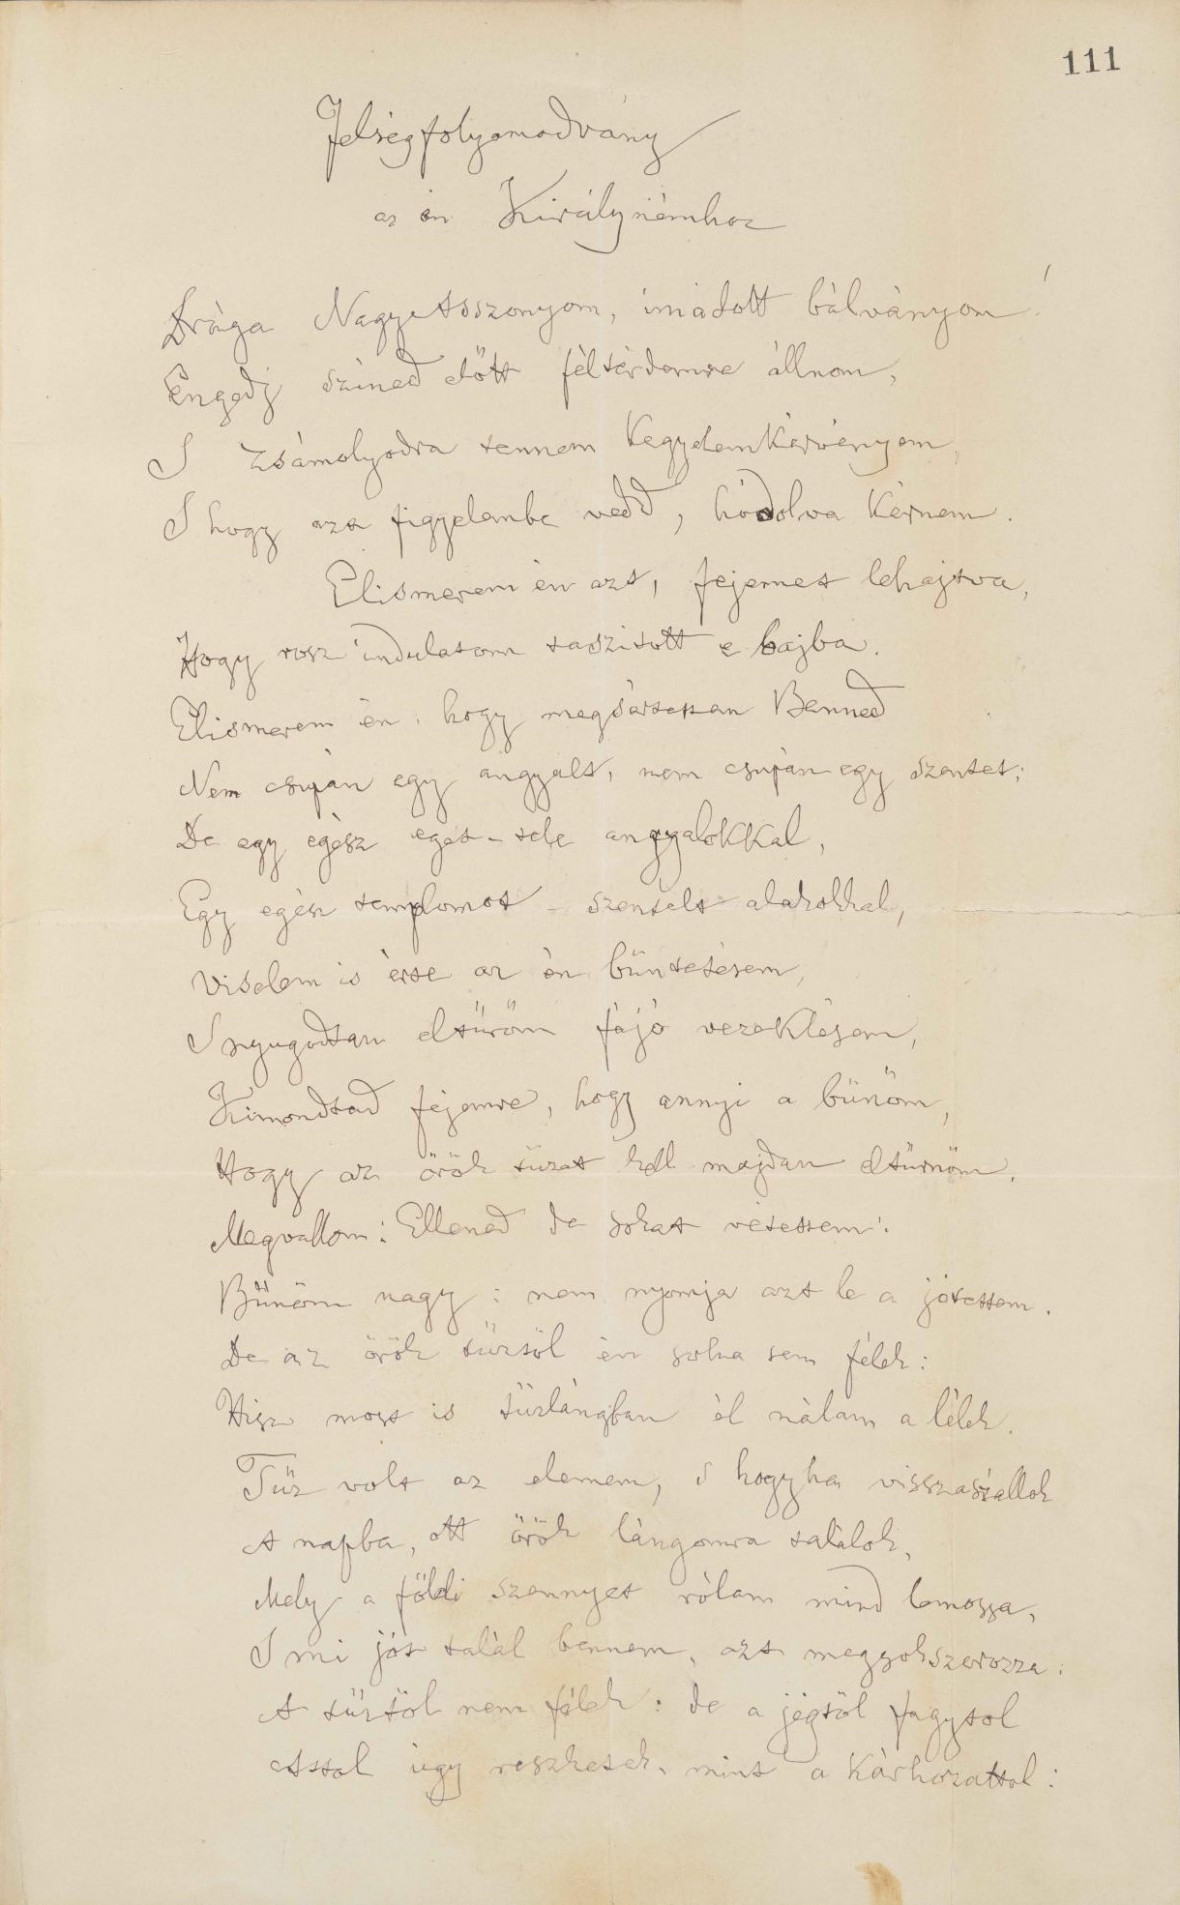 111
Felségfolyamodvány
az én Királynémhoz
Drága NagyAsszonyom, imádott bálványom!
Engedj szined előtt féltérdemre állnom,
S zsámolyodra tennem kegyelemkérvényem,
S hogy azt figyelembe vedd, hódolva kérnem.
Elismerem én azt, fejemet lehajtva,
Hogy rosz indulatom taszitott e bajba.
Elismerem én, hogy megsértettem Benned
Nem csupán egy angyalt, nem csupán egy szentet;
De egy egész eget - tele angyalokkal,
Egy egész templomot - szentelt alakokkal,
Viselem is érte az én büntetésem,
S nyugodtan eltüröm fájó vezeklésem,
Kimondtad fejemre, hogy annyi a bünöm,
Hogy az örök tüzet kell majdan eltürnöm.
Megvallom: Ellened de sokat vétettem!
Bűnöm nagy: nem nyomja azt le a jótettem.
De az örök tűztöl én soha sem félek:
Hisz most is tűzlángban él nálam a lélek.
Tűz volt az elemem, s hogyha visszaszállok
A napba, ott örök lángomra találok,
Mely a földi szennyet rólam mind lemossa,
S mi jót talál bennem, azt megsokszorozza:
A tűztöl nem félek: de a jégtöl fagytol
Attol ugy reszketek, mint a kárhozattol: